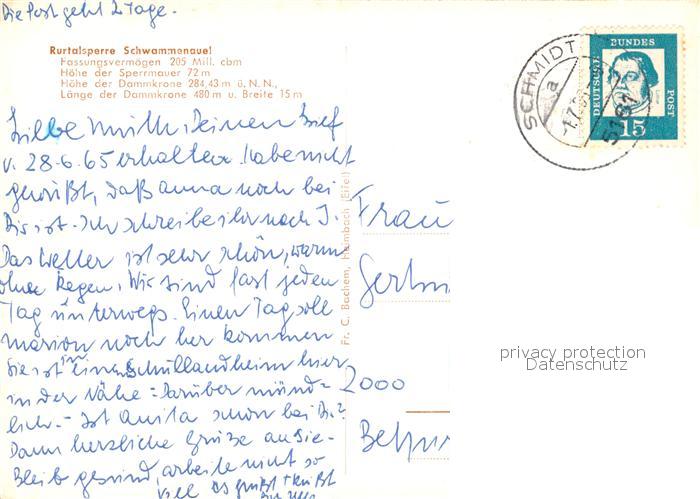 Die Post geht 2 Tage.
Rurtalsperre Schwammenauel
Fassungsvermögen 205 Mill. cbm
Höhe der Sperrmauer 72 m
Höhe der Dammkrone 284,43 m ü. N.N.,
Länge der Dammkrone 480 m u. Breite 15 m
Deinen Brief
v. 28.6.65 erhalten. Habe nicht
gewußt, daß Anna noch bei
Dir ist. Ich schreibe ihr nach
Das Wetter ist sehr schön, warm
ohne Regen. Wir sind fast jeden
Tag unterwegs. Einen Tag soll
Marion noch her kommen
Sie ist in einem Schullandheim hier
in der Nähe. Darüber münd=
lich. - Ist Anita schon bei Dir?
Dann herzliche Grüße an Sie-
Bleib gesund, arbeite nicht so
viel Es grüßt + küßt
Fr. C. Bachem, Heimbach (Eifel)
SCHMIDT
a
5161
DEUTSCHE
BUNDES
POST
15
Frau
2000
privacy protection
Datenschutz